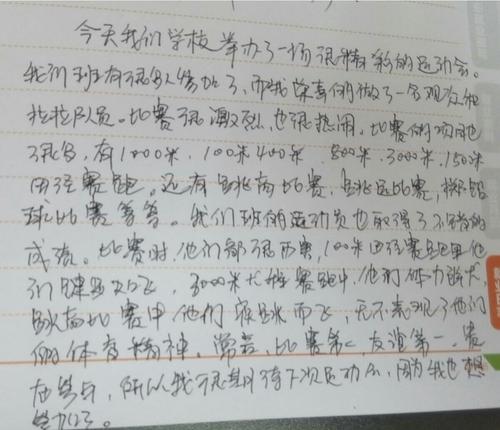 今天我们学校举办了一场很精彩的运动会。
我们班有很多人参加了,而我荣幸的做了一名观众和
拉拉队员。比赛很激烈,也很热闹。比赛的项目也
很多,有1000米,100米400米,800米,3000米,1500米
田径赛跑。还有跳高比赛,跳远比赛,掷铅
球比赛等等。我们班的运动员也取得了不错的
成绩。比赛时,他们都很厉害,100米田径赛跑里他
们健步如飞,3000米长跑赛跑中,他们体力强大,
跳高比赛中他们 跃而飞,无不表现了他们
的体育精神。常言,比赛第二,友谊第一。贵
在参与,所以我很期待下次运动会,因为我也想
参加了。